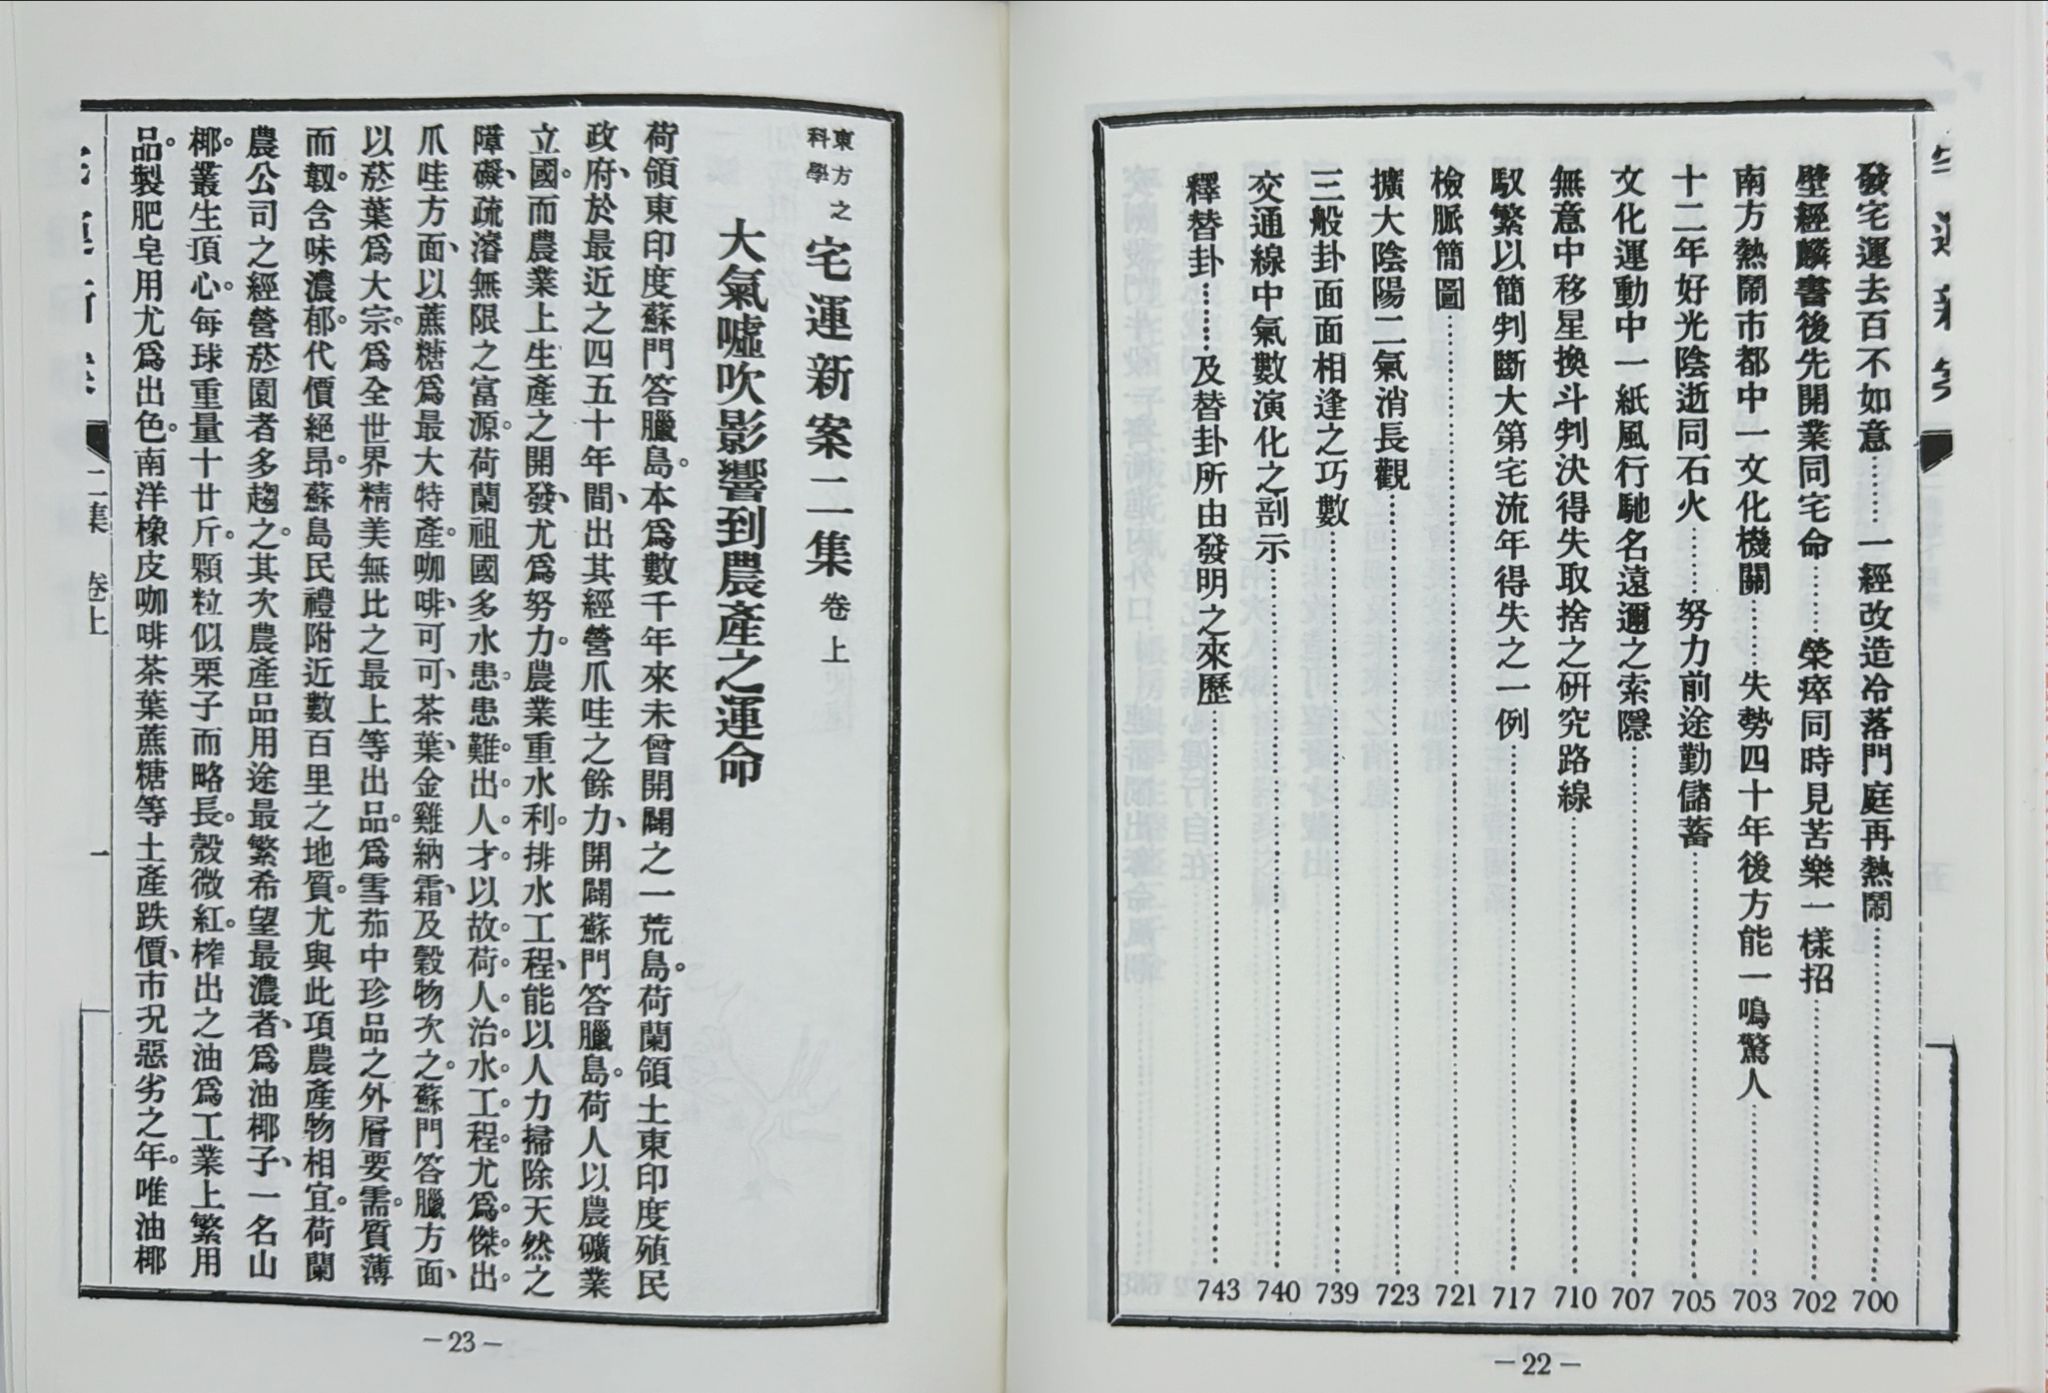 發宅運去百不如意……一經改造冷落門庭再熱鬧……700
壁經麟書後先開業同宅命……榮瘁同時見苦樂一樣招……702
南方熱鬧市都中一文化機關……失勢四十年後方能一鳴驚人……703
十二年好光陰逝同石火……努力前途勤儲蓄……705
文化運動中一紙風行馳名遠邇之索隱……707
無意中移星換斗判決得失取捨之研究路線……710
馭繁以簡判斷大第宅流年得失之一例……717
檢脈簡圖……721
擴大陰陽二氣消長觀……723
三般卦面面相逢之巧數……739
交通線中氣數演化之剖示……740
釋替卦……及替卦所由發明之來歷……743
—22—
東方之科學 宅運新案二集 卷上
大氣噓吹影響到農產之運命
荷領東印度蘇門答臘島。本爲數千年來未曾開闢之一荒島。荷蘭領土東印度殖民
政府、於最近之四五十年間、出其經營爪哇之餘力、開闢蘇門答臘島。荷人以農礦業
立國。而農業上生產之開發、尤爲努力。農業重水利。排水工程、能以人力掃除天然之
障礙、疏濬無限之富源。荷蘭祖國多水患。患難。出人。才。以故。荷。人。治。水。工。程。尤。爲。傑。出。
爪哇方面、以蔗糖爲最大特產。咖啡、可可、茶葉、金雞納霜、及穀物次之。蘇門答臘方面、
以菸葉爲大宗。爲全世界精美無比之最上等出品。爲雪茄中珍品之外層要需。質薄
而韌。含味濃郁。代價絕昂。蘇島民禮附近數百里之地質。尤與此項農產物相宜。荷蘭
農公司之經營菸園者多趨之。其次農產品用途最繁希望最濃者、爲油椰子、一名山
椰。叢生頂心。每球重量十廿斤。顆粒似栗子而略長。殼微紅。榨出之油爲工業上繁用
品。製肥皂用尤爲出色。南洋橡皮咖啡茶葉蔗糖等土產跌價、市況惡劣之年。唯油椰
二集 卷上
一
—23—